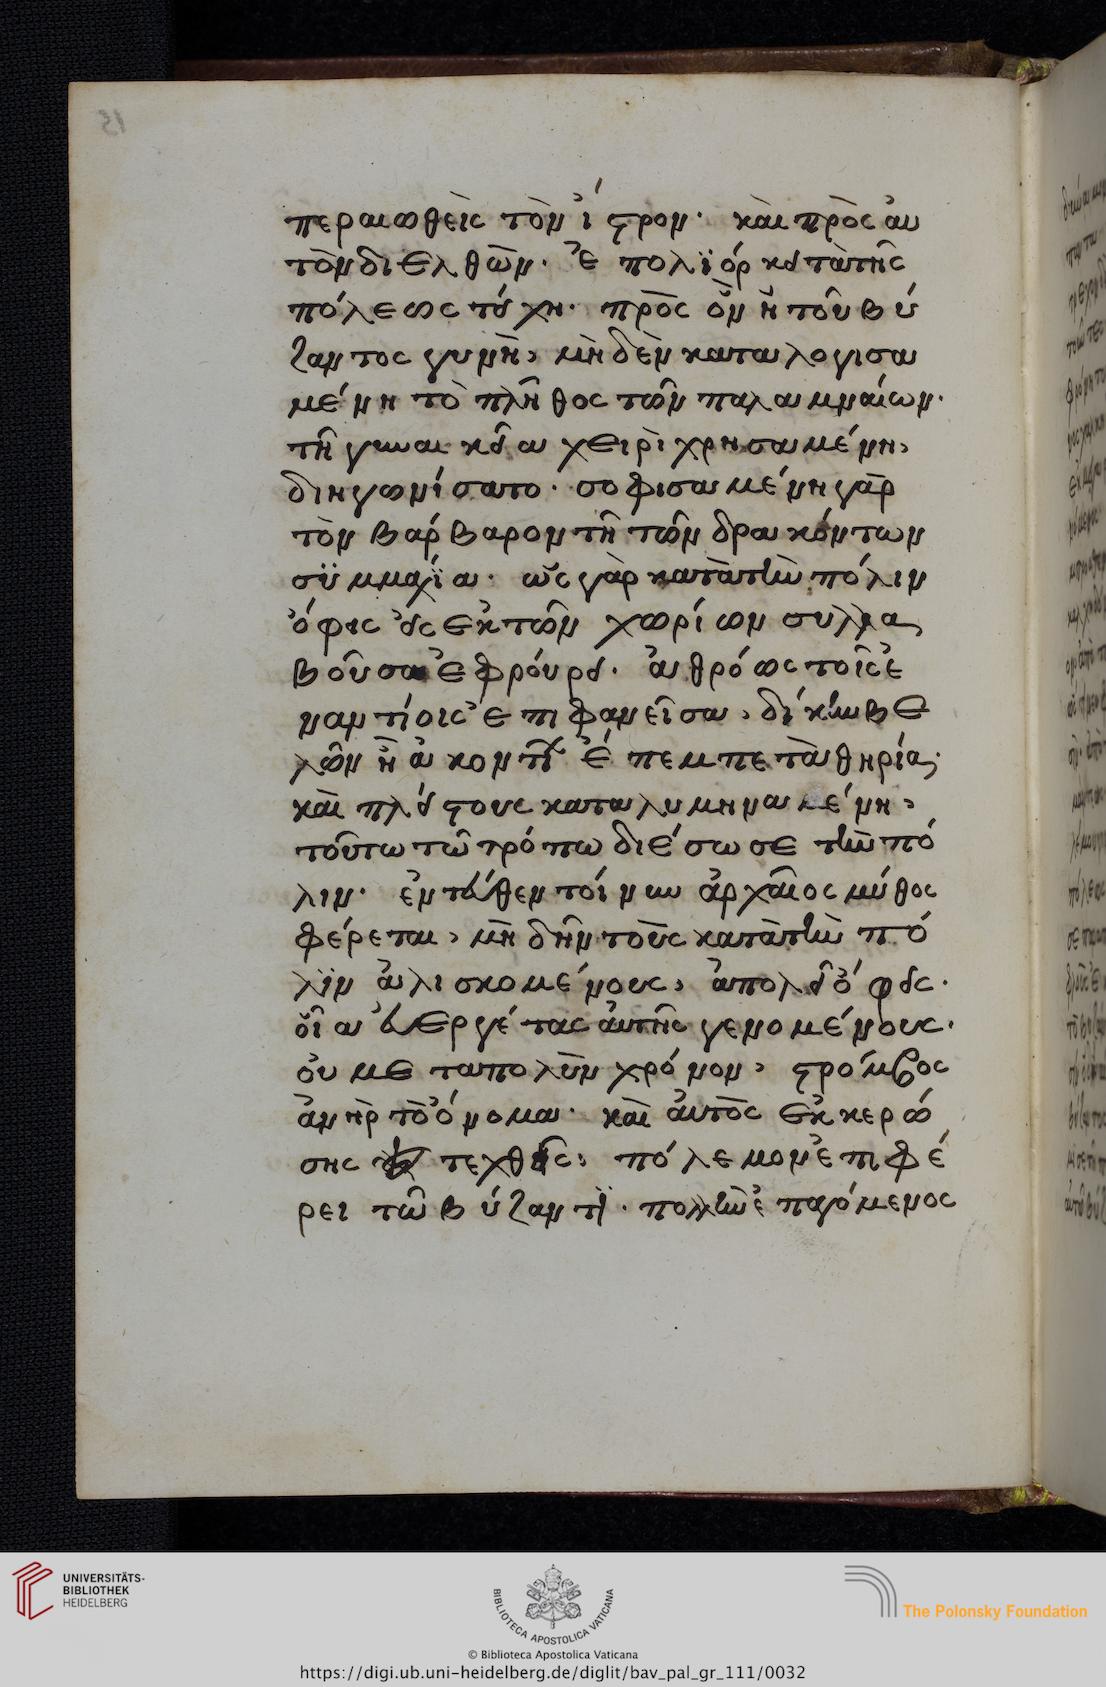 15
περαιωθεὶς τὸν ἴστρον· καὶ πρὸς αὐ
τὸν διελθὼν· ἐπολϊόρκει τὰ τῆς
πόλεως τείχη· πρὸς ὃν ἡ τοῦ βύ
ζαντος γυνὴ, μὴδὲν καταλογισα
μένη τὸ πλῆθος τῶν παλαμναίων·
τῆ γυναικεία χειρὶ χρησαμένη,
διηγωνίσατο· σοφισαμένη γὰρ
τὸν βάρβαρον τῆ τῶν δρακόντων
συμμαχία· ὡς γὰρ κατὰ τὴν πόλιν
ὄφεις εἰς ἐκ τῶν χωρίων συλλα
βοῦσα ἐφρούρει· ἀθρόως τοῖς ἐ
ναντίοις ἐπιφανεῖσα, δίκην βε
λῶν ἢ ἀκοντίων ἔπεμπε τὰ θηρία·
καὶ πλείστους καταλυμηναμένη,
τούτω τῶ τρόπω διέσωσε τὴν πό
λιν· ἐντεύθεν τοίνυν ἀρχαῖος μύθος
φέρεται, μὴ δεῖν τοὺς κατὰ τὴν πό
λϊν ἁλισκομένους, ἀπολεῖ ὄφεις·
οἷα εὐεργέτας αὐτῆς γενομένους·
οὐ μετα πολὺν χρόνον, στρόμβος
ἀνὴρ τὸ ὄνομα· καὶ αὐτὸς ἐκ κερό
σης τεχθεὶς, πόλεμον ἐπιφέ
ρει τῶ βύζαντϊ· πολλὴν ἐπαγόμενος
UNIVERSITÄTS-
BIBLIOTHEK
HEIDELBERG
BIBLIOTECA APOSTOLICA VATICANA
The Polonsky Foundation
© Biblioteca Apostolica Vaticana
https://digi.ub.uni-heidelberg.de/diglit/bav_pal_gr_111/0032